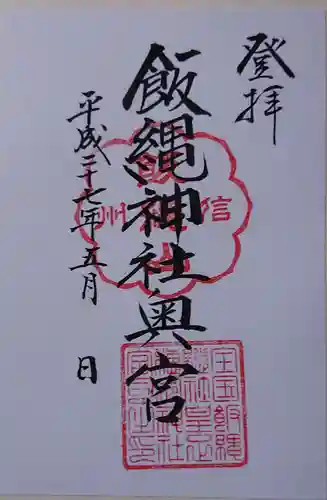 登拝
飯縄神社奥宮
平成二十七年五月 日
信州